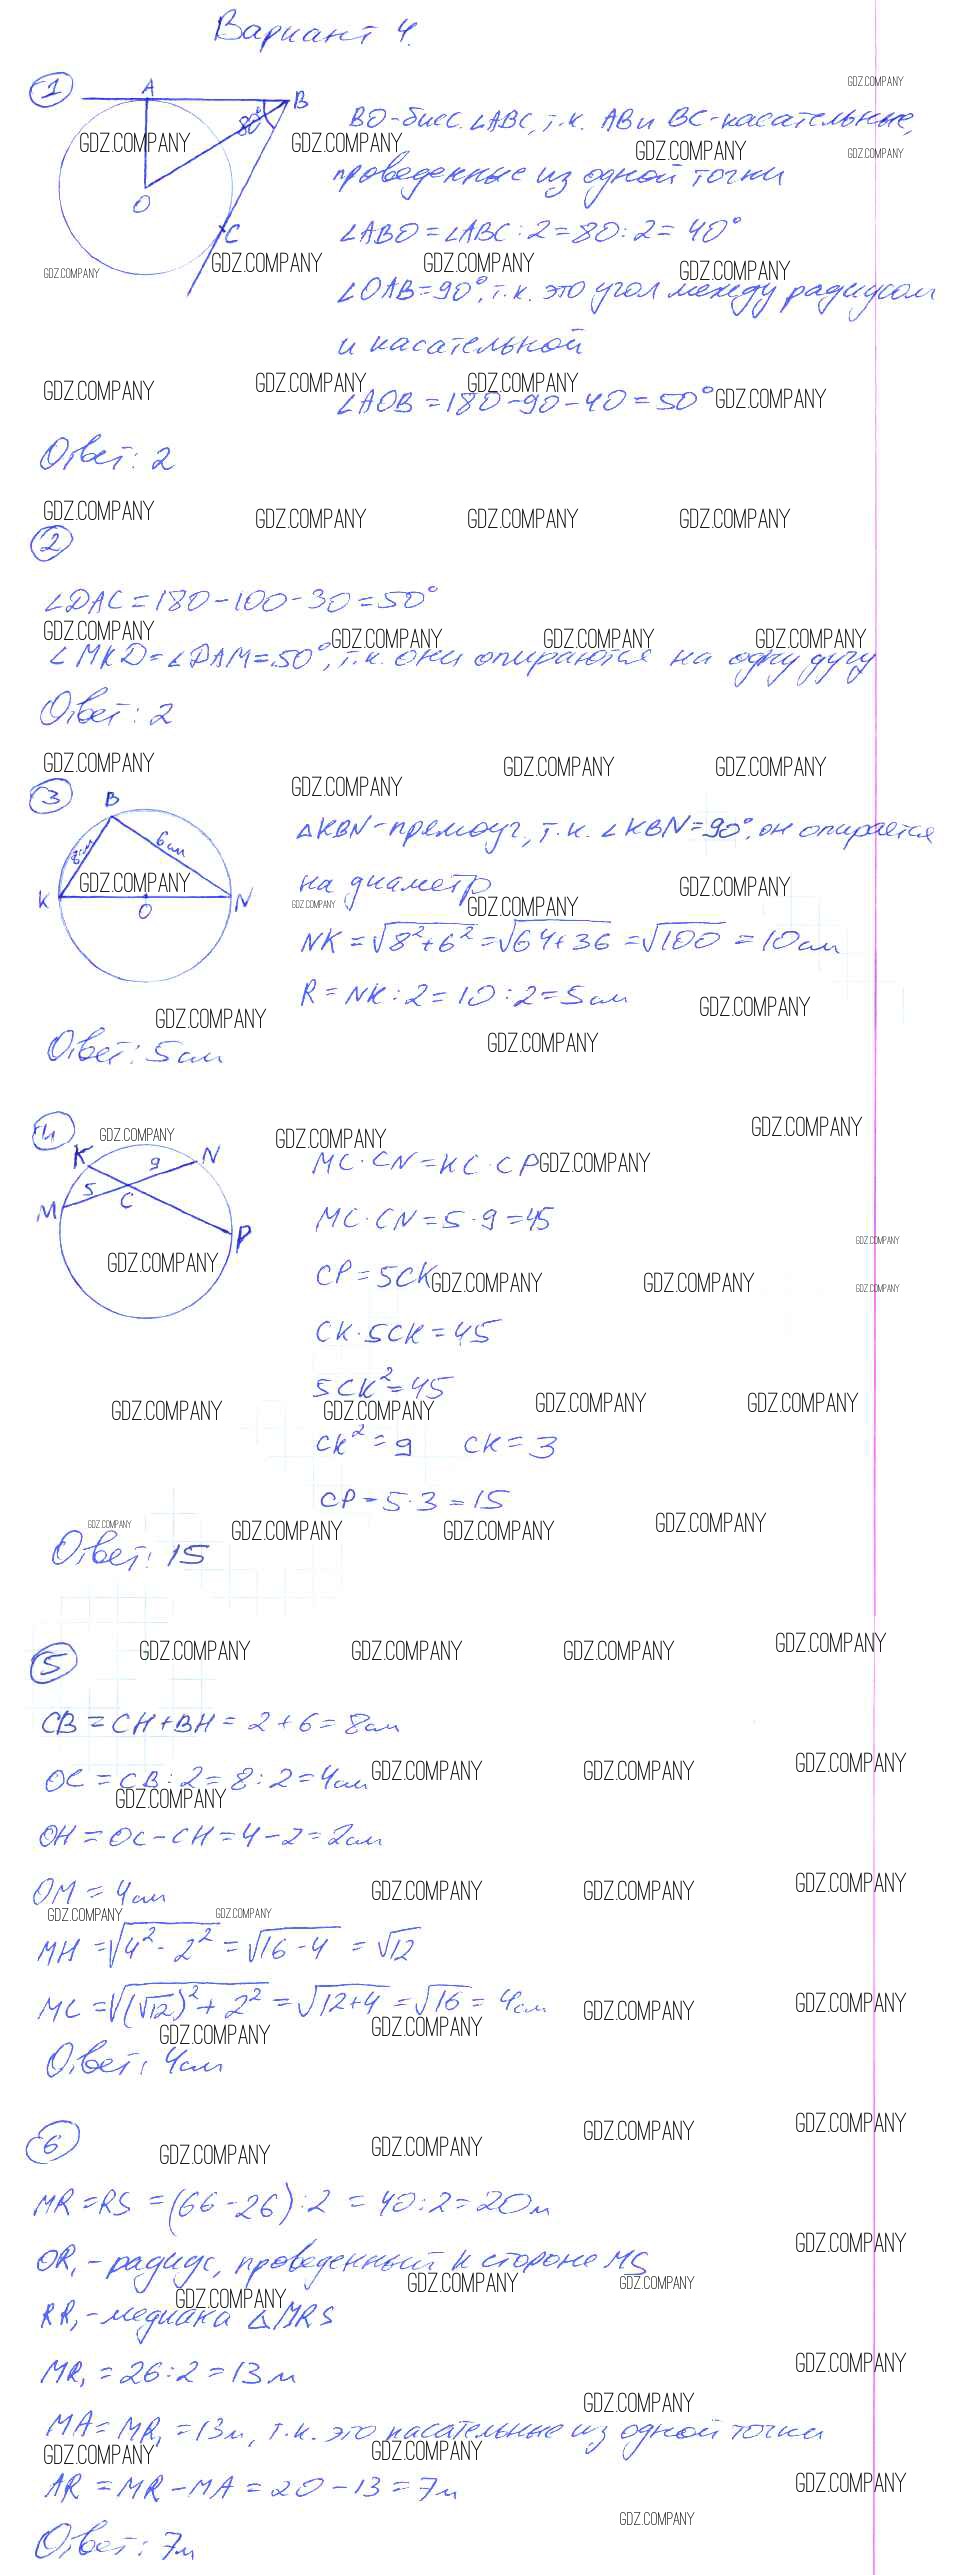 Вариант 4.
1
A
B
80°
O
C
BO-бисс. ∠ABC, т.к. AB и BC-касательные,
проведенные из одной точки
∠ABO = ∠ABC : 2 = 80 : 2 = 40°
∠OAB = 90°, т.к. это угол между радиусом
и касательной
∠AOB = 180 - 90 - 40 = 50°
Ответ: 2
2
∠DAC = 180 - 100 - 30 = 50°
∠MKD = ∠DAM = 50°, т.к. они опираются на одну дугу
Ответ: 2
3
B
8см
6см
K
O
N
△KBN-прямоуг, т.к. ∠KBN = 90°, он опирается
на диаметр
NK = √8²+6² = √64+36 = √100 = 10см
R = NK : 2 = 10 : 2 = 5см
Ответ: 5см
4
K
9
N
5
C
M
P
MC · CN = KC · CP
MC · CN = 5 · 9 = 45
CP = 5CK
CK · 5CK = 45
5CK² = 45
CK² = 9 CK = 3
CP = 5 · 3 = 15
Ответ: 15
5
CB = CH + BH = 2 + 6 = 8см
OC = CB : 2 = 8 : 2 = 4см
OH = OC - CH = 4 - 2 = 2см
OM = 4см
MH = √4² - 2² = √16 - 4 = √12
MC = √(√12)² + 2² = √12+4 = √16 = 4см
Ответ: 4см
6
MR = RS = (66 - 26) : 2 = 40 : 2 = 20м
OR₁ - радиус, проведенный к стороне MS
RR₁ - медиана △MRS
MR₁ = 26 : 2 = 13м
MA = MR₁ = 13м, т.к. это касательные из одной точки
AR = MR - MA = 20 - 13 = 7м
Ответ: 7м
GDZ.COMPANY